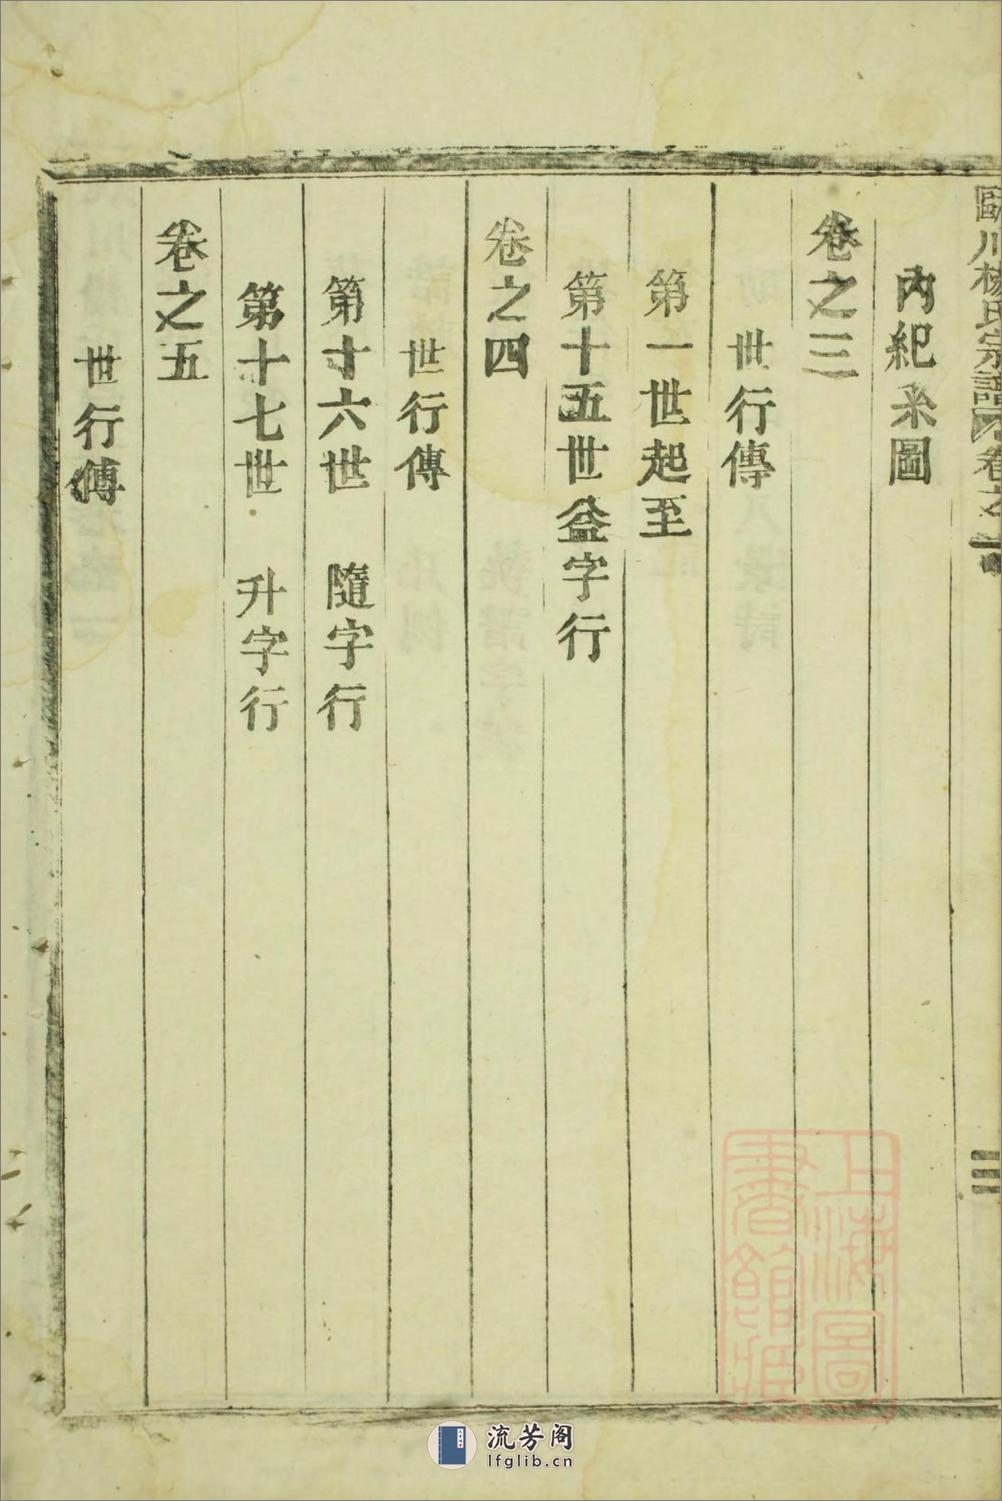 川楊氏宗譜 卷之一
三
內紀系圖
卷之三
世行傳
第一世起至
第十五世益字行
卷之四
世行傳
第十六世 隨字行
第十七世 升字行
卷之五
世行傳
上海圖書館藏
流芳阁
lfglib.cn